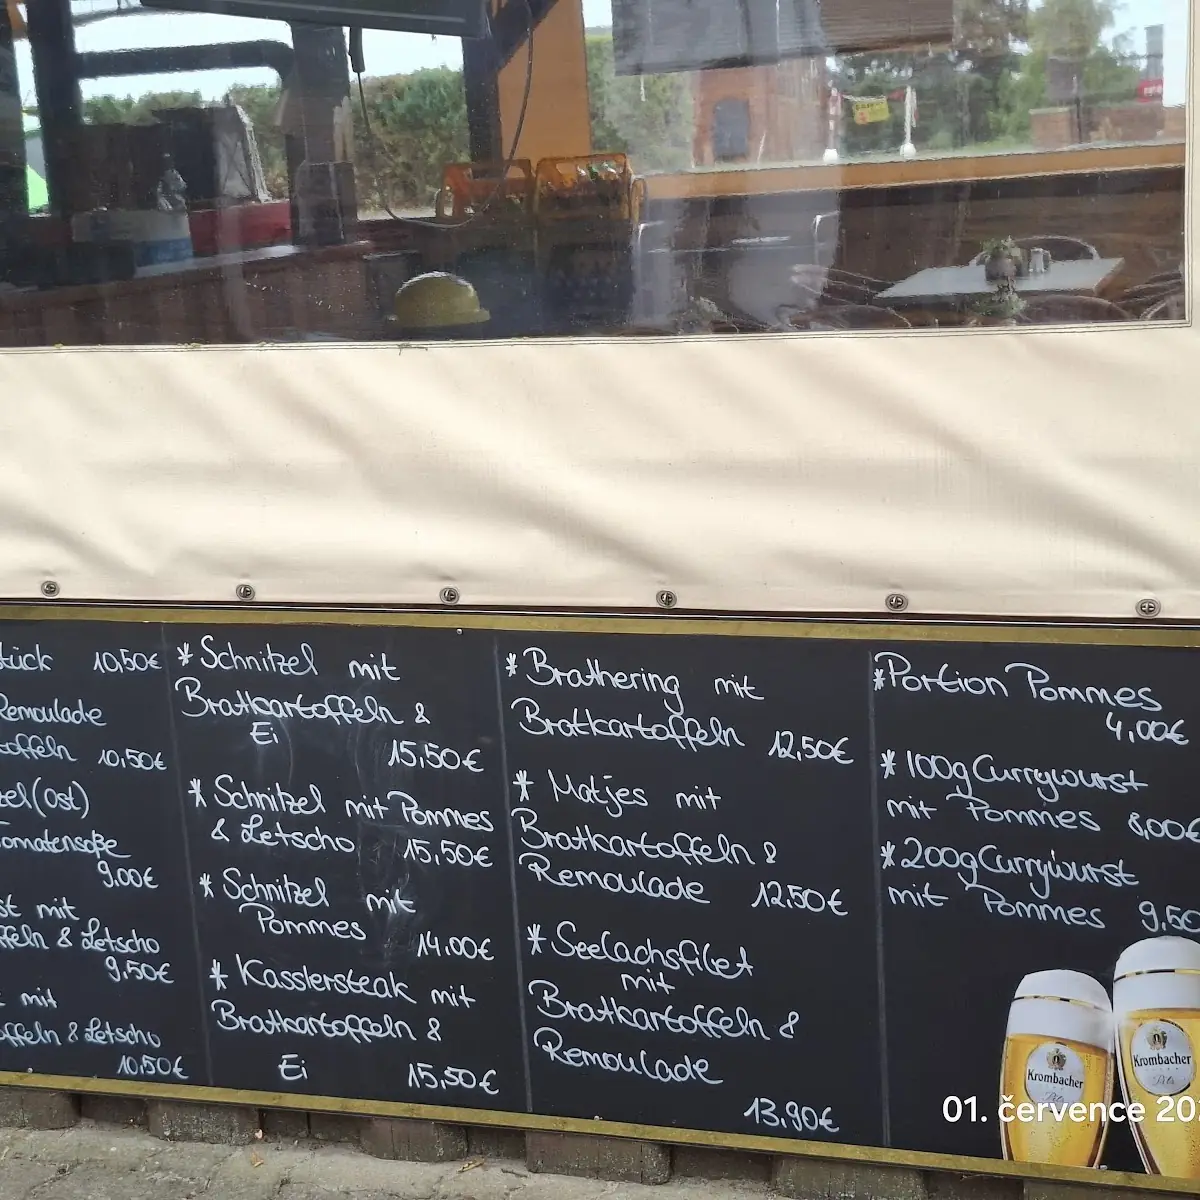 tück 10,50€
Remoulade
toffeln 10,50€
zel (Ost)
Tomatensoße
9,00€
st mit
ffeln & Letscho
9,50€
mit
offeln & Letscho
10,50€
* Schnitzel mit
Bratkartoffeln &
Ei
15,50€
* Schnitzel mit Pommes
& Letscho 15,50€
* Schnitzel mit
Pommes
14,00€
* Kasslersteak mit
Bratkartoffeln &
Ei 15,50€
* Brathering mit
Bratkartoffeln 12,50€
* Matjes mit
Bratkartoffeln &
Remoulade 12,50€
* Seelachsfilet
mit
Bratkartoffeln &
Remoulade
13,90€
* Portion Pommes
4,00€
* 100g Currywurst
mit Pommes 8,00€
* 200g Currywurst
mit Pommes 9,50
Krombacher
Pils
Krombacher
Pils
01. července 20